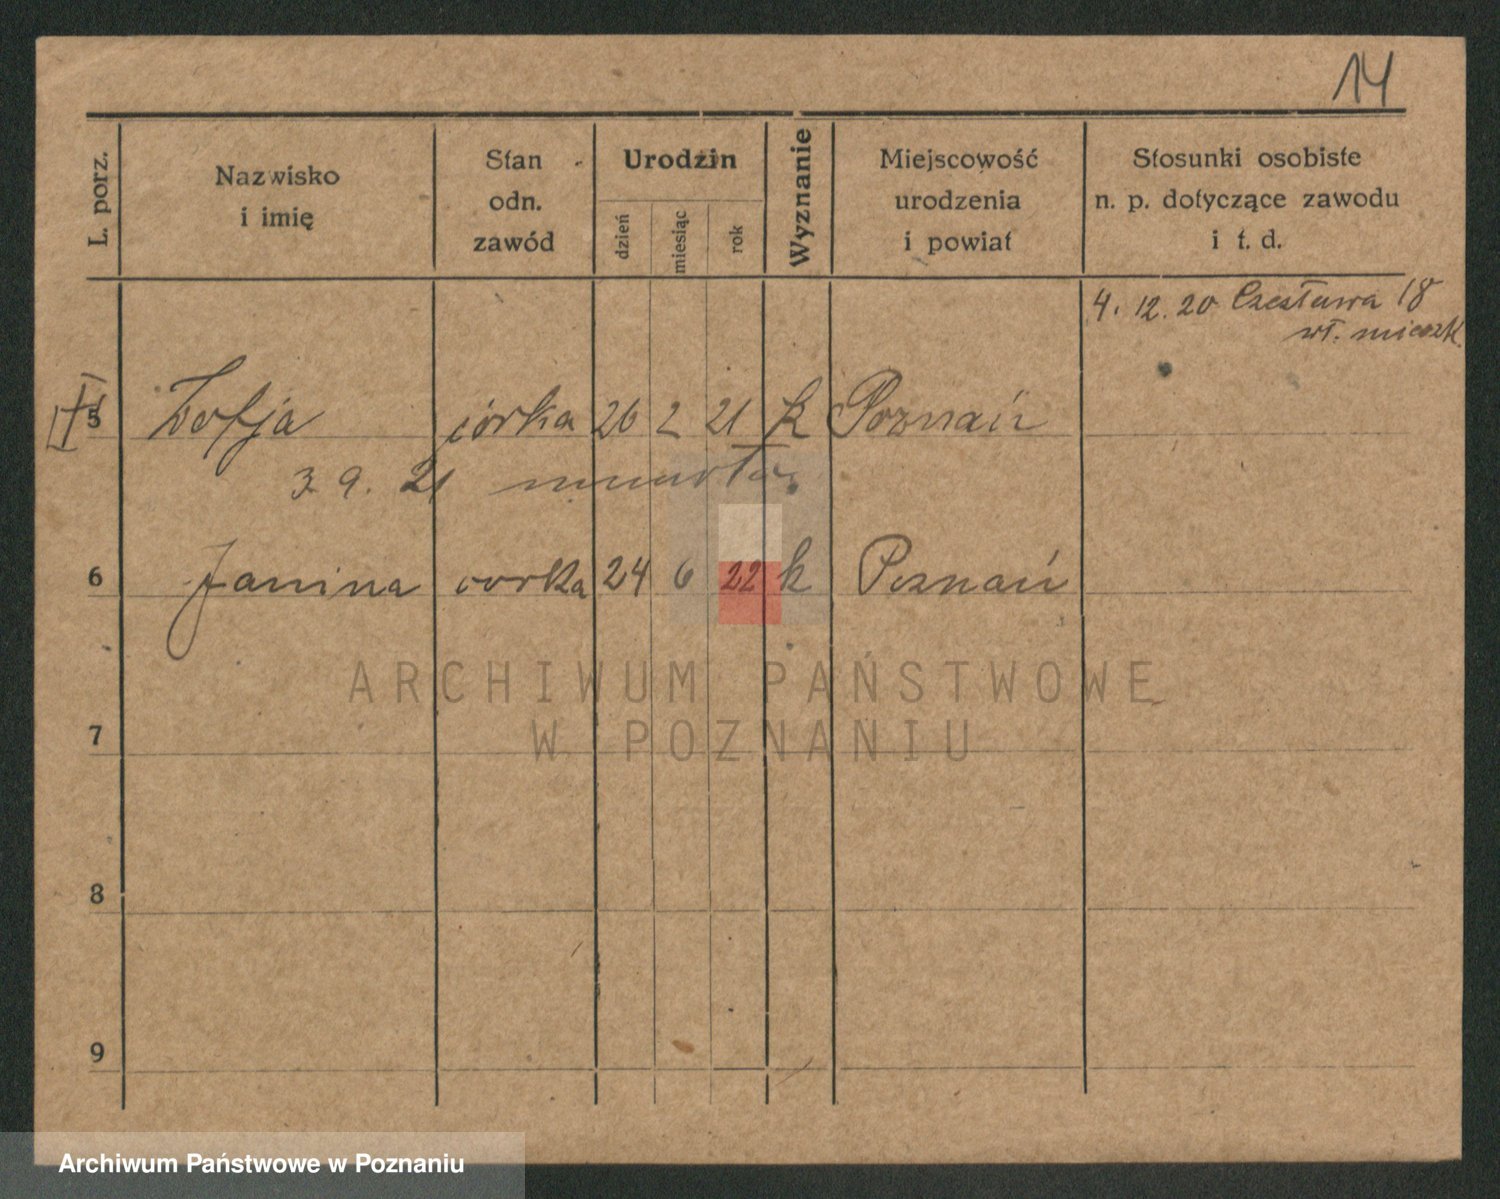 14
L. porz.
Nazwisko
i imię
Stan
odn.
zawód
Urodzin
dzień
miesiąc
rok
Wyznanie
Miejscowość
urodzenia
i powiat
Stosunki osobiste
n. p. dotyczące zawodu
i t. d.
4. 12. 20 Czesława 18
wł. mieszk.
5 Zofja córka 26 2 21 k Poznań
3 9. 21 umarła
6 Janina córka 24 6 22 k Poznań
ARCHIWUM PAŃSTWOWE
W POZNANIU
7
8
9
Archiwum Państwowe w Poznaniu